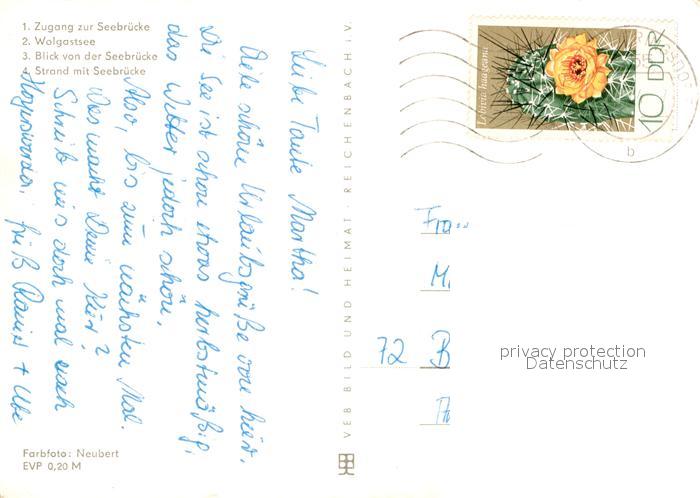 1. Zugang zur Seebrücke
2. Wolgastsee
3. Blick von der Seebrücke
4. Strand mit Seebrücke
Liebe Tante Martha!
Viele schöne Urlaubsgrüße von hier.
Die See ist schon etwas herbstmäßig,
das Wetter jedoch schön.
Also, bis zum nächsten Mal.
Was macht Deine Kur?
Schreib uns doch mal nach
Hoyerswerda. Grüß Rainer + Ute
Farbfoto: Neubert
EVP 0,20 M
VEB BILD UND HEIMAT · REICHENBACH i.V.
Lobivia haageana
10 DDR
b
Frau
M
72 B
privacy protection
Datenschutz